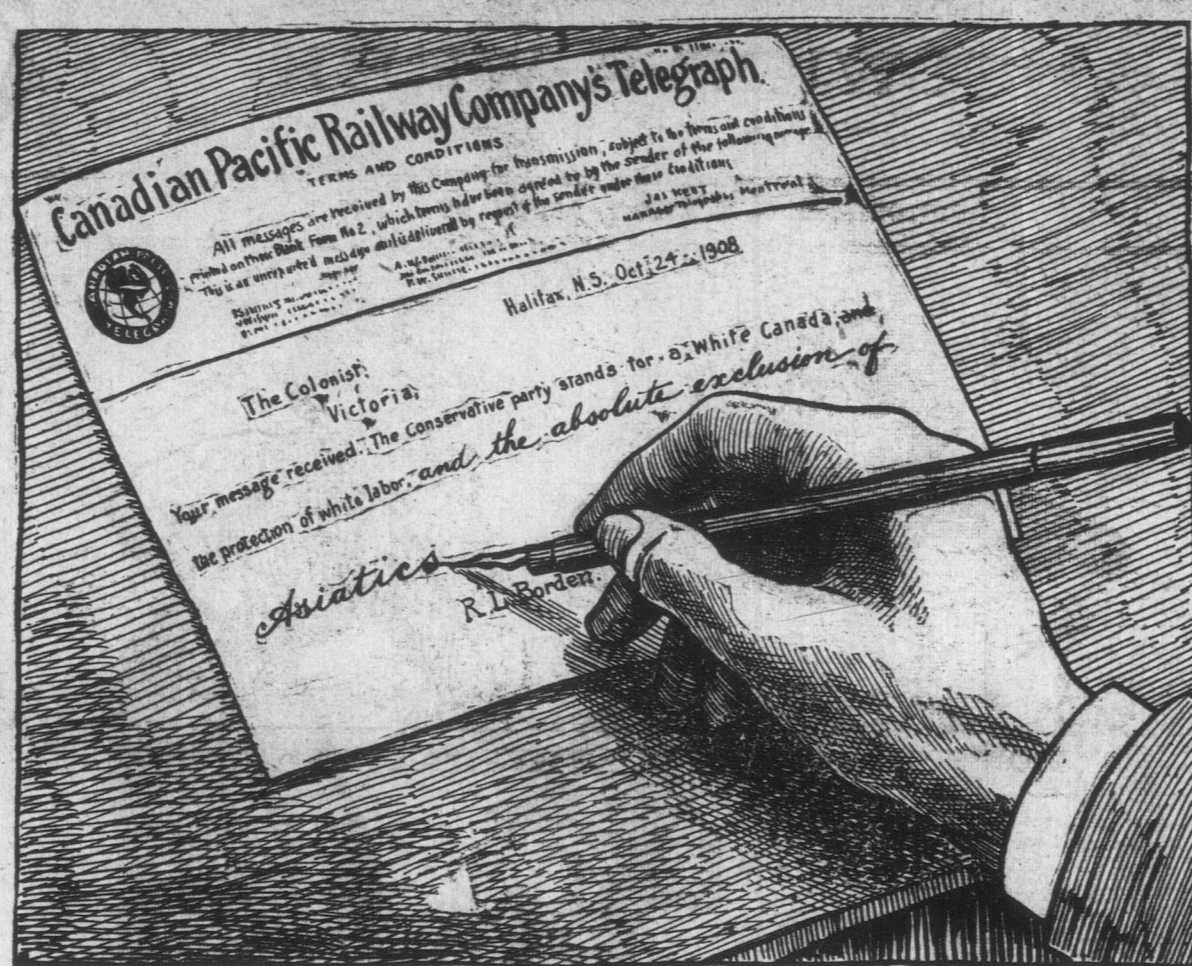 Canadian Pacific Railway Company's Telegraph.
TERMS AND CONDITIONS
All messages are received by this Company for transmission, subject to the terms and conditions
printed on their Blank Form No 2, which terms have been agreed to by the sender of the following message.
This is an unrepeated message and is delivered by request of the sender under these conditions
JAS KENT
MANAGER Telegraphs Montreal
Halifax, N.S. Oct. 24 1908
The Colonist,
Victoria,
Your message received. The Conservative party stands for a White Canada, and
the protection of white labor, and the absolute exclusion of
Asiatics
R. L. Borden.